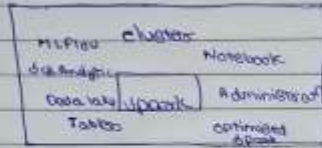 cluster
MLFlow
Notebook
SQL Analytic
Data lake
spark
Administrator
Tables
optimized
spark